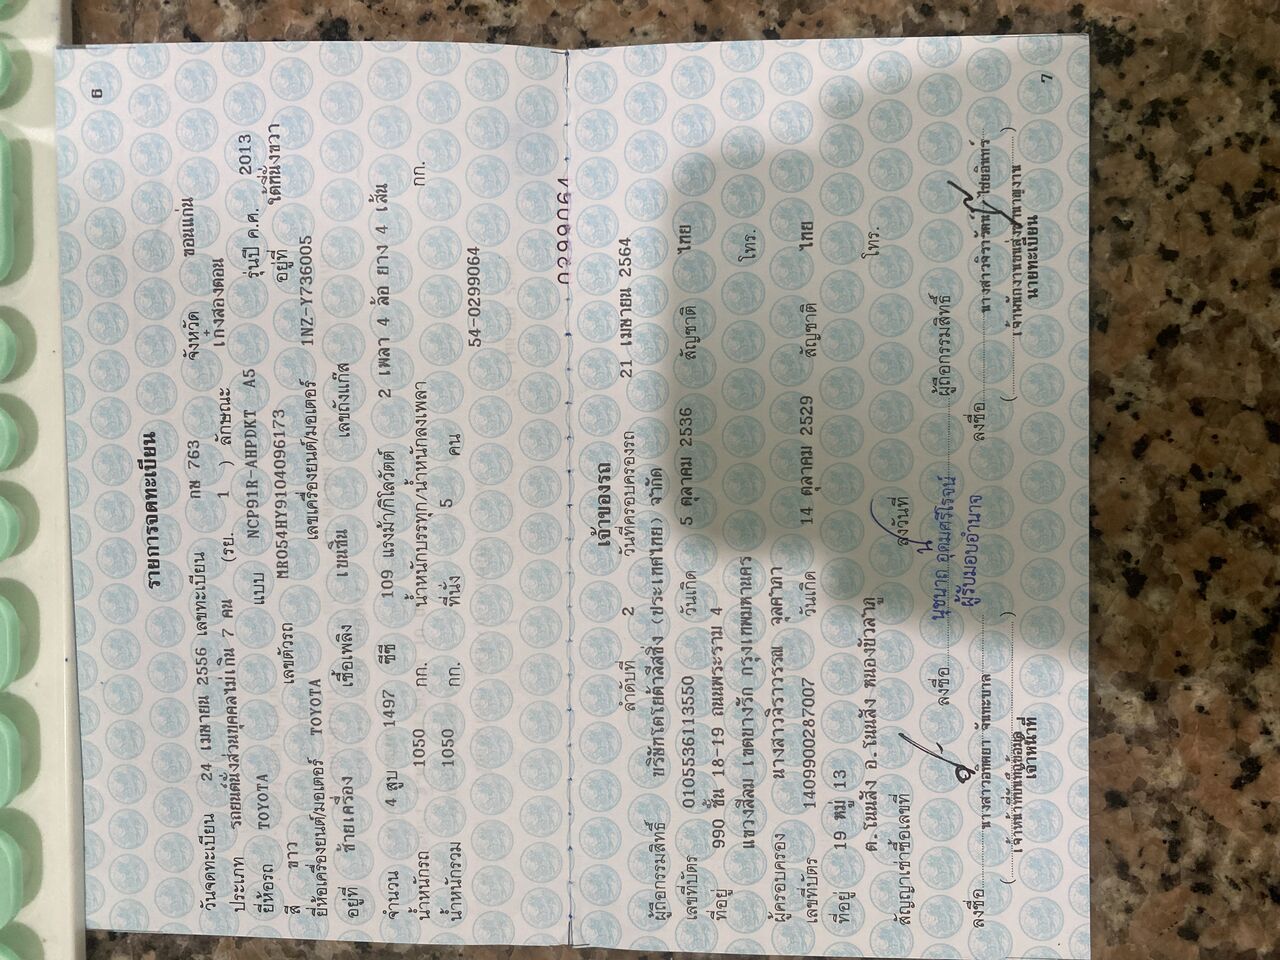 6
รายการจดทะเบียน
วันจดทะเบียน 24 เมษายน 2556 เลขทะเบียน กษ 763 จังหวัด ขอนแก่น
ประเภท รถยนต์นั่งส่วนบุคคลไม่เกิน 7 คน (รย. 1 ) ลักษณะ เก๋งสองตอน
ยี่ห้อรถ TOYOTA แบบ NCP91R-AHPDKT A5 รุ่นปี ค.ศ. 2013
สี ขาว เลขตัวรถ MR054HY9104096173 อยู่ที่ ใต้ที่นั่งขวา
ยี่ห้อเครื่องยนต์/มอเตอร์ TOYOTA เลขเครื่องยนต์/มอเตอร์ 1NZ-Y736005
อยู่ที่ ซ้ายเครื่อง เชื้อเพลิง เบนซิน เลขถังแก๊ส
จำนวน 4 สูบ 1497 ซีซี 109 แรงม้า/กิโลวัตต์ 2 เพลา 4 ล้อ ยาง 4 เส้น
น้ำหนักรถ 1050 กก. น้ำหนักบรรทุก/น้ำหนักลงเพลา กก.
น้ำหนักรวม 1050 กก. ที่นั่ง 5 คน
54-0299064
0299064
เจ้าของรถ
ลำดับที่ 2 วันที่ครอบครองรถ 21 เมษายน 2564
ผู้ถือกรรมสิทธิ์ บริษัทโตโยต้าลีสซิ่ง (ประเทศไทย) จำกัด
เลขที่บัตร 0105536113550 วันเกิด 5 ตุลาคม 2536 สัญชาติ ไทย
ที่อยู่ 990 ชั้น 18-19 ถนนพระราม 4
แขวงสีลม เขตบางรัก กรุงเทพมหานคร โทร.
ผู้ครอบครอง นางสาวจิราวรรณ
เลขที่บัตร 1409900287007 วันเกิด 14 ตุลาคม 2529 สัญชาติ ไทย
ที่อยู่ 19 หมู่ 13
ต.โนนสัง อ.โนนสัง หนองบัวลำภู โทร.
สัญญาเช่าซื้อเลขที่ ลงวันที่
ลงชื่อ ผู้ถือกรรมสิทธิ์
นุชนาถ อุดมศรีโรจน์
ผู้รับมอบอำนาจ
ลงชื่อ นางสาวอทิตยา จันทะบาล ลงชื่อ
( เจ้าหน้าที่บันทึกข้อมูล )
เจ้าหน้าที่ นายทะเบียน
7